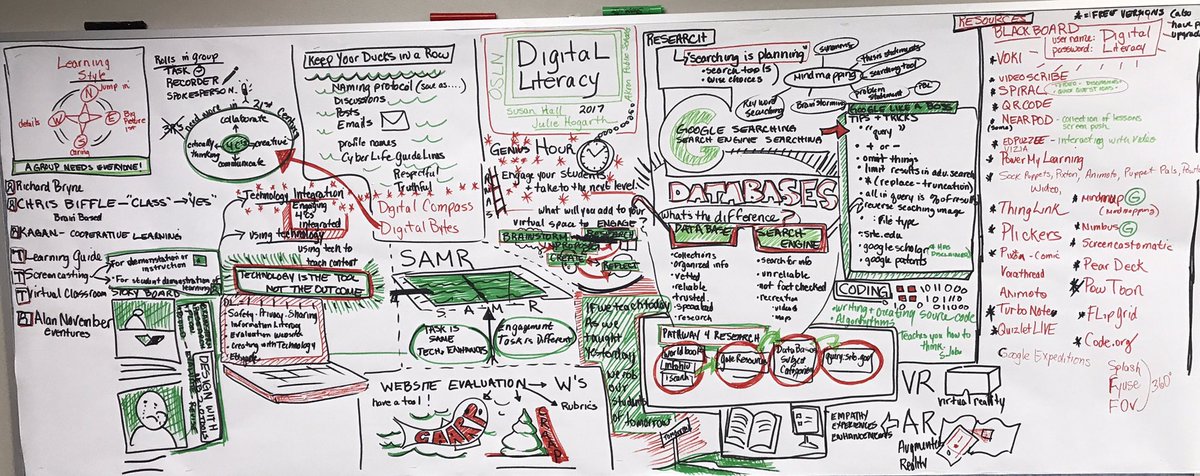 Learning
Style
N
Jump in
details
W
E
Big
Picture
1st
S
Caring
A GROUP NEEDS EVERYONE!
Rolls in group
TASK
RECORDER
SPOKESPERSON
3R's
need work in 21st Century
collaborate
critically
thinking
4C's
creative
communicate
Richard Bryne
CHRIS BIFFLE - "CLASS" → "yes"
Brain Based
KAGAN - COOPERATIVE LEARNING
Learning Guide
Screencasting
Virtual Classroom
For demonstration or
instruction
For student demonstration of
learning
Alan November
eventures
STORY BOARD
DESIGN WITH
Keep Your Ducks in a Row
NAMING protocol (save as....)
Discussions
Posts
Emails
profile names
Cyber Life Guidelines
Respectful
Truthful
Digital Compass
Digital Bites
Technology Integration
Engaging
4C's
Integrated
Using technology
using tech to
teach content
TECHNOLOGY IS THE TOOL
NOT THE OUTCOME
Safety - Privacy - Sharing
Information Literacy
Evaluation websites
Creating with Technology
Etiquette
OSLN
Digital
Literacy
Akron Public Schools
Susan Hall 2017
Julie Hogarth
GENIUS HOUR
Engage your students
+ take to the next level.
what will you add to your
virtual space to ENGAGE
BRAINSTORM
RESEARCH
PROPOSE
CREATE
REFLECT
SAMR
S - A - M - R
TASK IS
SAME
TECH ENHANCES
Engagement
Task is Different
WEBSITE EVALUATION → W's
have a tool!
Rubrics
CAARP
If we teach today
As we
taught
yesterday
we rob
our
students
of
tomorrow
RESEARCH
"searching is planning"
• search tools
• wise choices
Mindmapping
synonyms
thesis statements
searching tool
problem
statement
PBL
Brainstorming
Key word
searching
GOOGLE SEARCHING
SEARCH ENGINE SEARCHING
DATABASES
What's the difference?
DATABASE
SEARCH
ENGINE
• collections
• organized info
• vetted
• reliable
• trusted
• specialized
• research
• search for info
• unreliable
• not fact checked
• recreation
• videos
• maps
GOOGLE LIKE A BOSS
TIPS + TRICKS
• "query"
• + or -
• omit things
• limit results in adv. search
• * (replace - truncation)
• all in query is % of results
• reverse seaching image
: file type
• site.edu
• google scholar
* HAS
DISCLAIMERS
• google patents
CODING
1011000
110110
• writing + creating source code
• Algorithms
Teaches you how to
think - S. Jobs
PATHWAY 4 RESEARCH
World book
infohio
isearch
Gale Resources
Data Base on
Subject
Categories
EMPATHY
EXPERIENCES
ENHANCEMENTS
VR
virtual reality
AR
Augmented
Reality
RESOURCES
* = FREE VERSIONS
BLACKBOARD
user name: Digital
password: Literacy
* VOKI
* VIDEOSCRIBE
* SPIRAL
* QR CODE
* NEARPOD - collection of lessons
(some)
screen push
* EDPUZZLE - interacting with video
VIZIA
* PowerMy Learning
* ThingLink
* Plickers
* Pixton - Comic
Voicethread
Animoto
* TurboNote
* Quizlet LIVE
Google Expeditions
* Mindmup G
(Mindmapping)
* Nimbus G
* Screencastomatic
* Pear Deck
* PowToon
* FLipgrid
* Code.org
Splash
Fyuse
FOV
360°